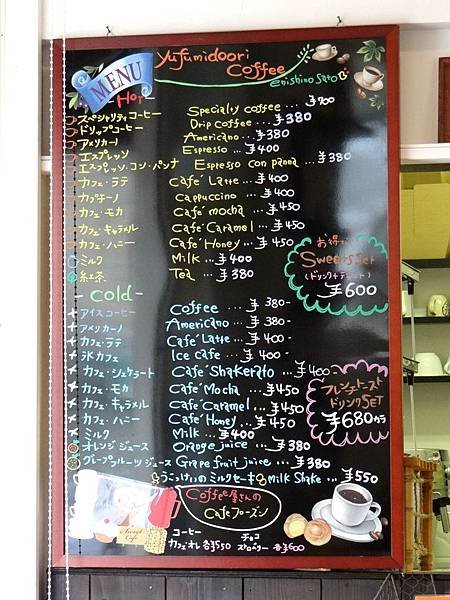 MENU
Yufumidoori
Coffee
enishino sato
Hot-
スペシャリティコーヒー Specialty coffee ... ¥700
ドリップコーヒー Drip coffee ... ¥380
アメリカーノ Americano ... ¥380
エスプレッソ Espresso ... ¥400
エスプレッソ・コン・パンナ Espresso con panna ... ¥380
カフェ・ラテ Cafe' Latte ... ¥400
カプチーノ cappuccino ... ¥400
カフェ・モカ Cafe' mocha ... ¥450
カフェ・キャラメル Cafe' Caramel ... ¥450
カフェ・ハニー Cafe' Honey ... ¥450
ミルク Milk ... ¥400
紅茶 Tea ... ¥380
お得な
Sweets Set
(ドリンク+デザート)
¥600
- Cold -
アイスコーヒー Coffee ... ¥380-
アメリカーノ Americano ... ¥380-
カフェ・ラテ Cafe' Latte ... ¥400-
氷カフェ Ice cafe ... ¥400-
カフェ・シェケラート Cafe' Shakerato ... ¥400-
カフェ・モカ Cafe' Mocha ... ¥450
カフェ・キャラメル Cafe' Caramel ... ¥450
カフェ・ハニー Cafe' Honey ... ¥450
ミルク Milk ... ¥400
オレンジジュース Orange juice ... ¥380
グレープフルーツジュース Grape fruit juice ... ¥380
フレンチトースト
ドリンクSET
¥680
うこっけいのミルクセーキ Milk Shake ... ¥550
Coffee屋さんの
Cafeフローズン
コーヒー
カフェオレ 各¥550
チョコ
ストロベリー 各¥600
Sweet
Cafe